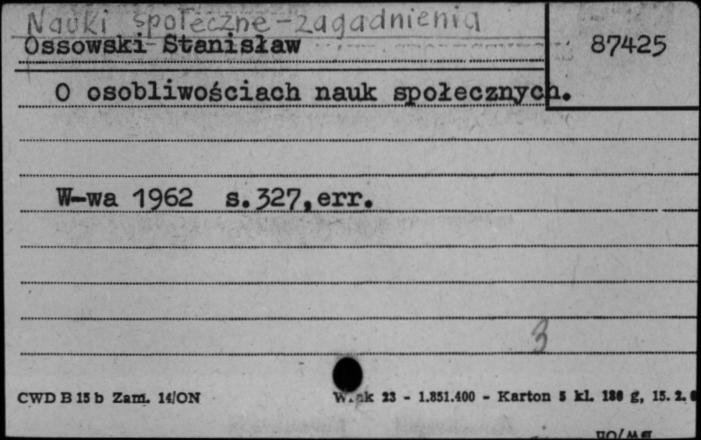 Nauki społeczne - zagadnienia
Ossowski Stanisław
87425
O osobliwościach nauk społecznych.
W-wa 1962 s.327,err.
3
CWD B 15 b Zam. 14/ON
23 - 1.851.400 - Karton 5 kl. 180 g, 15. 2.